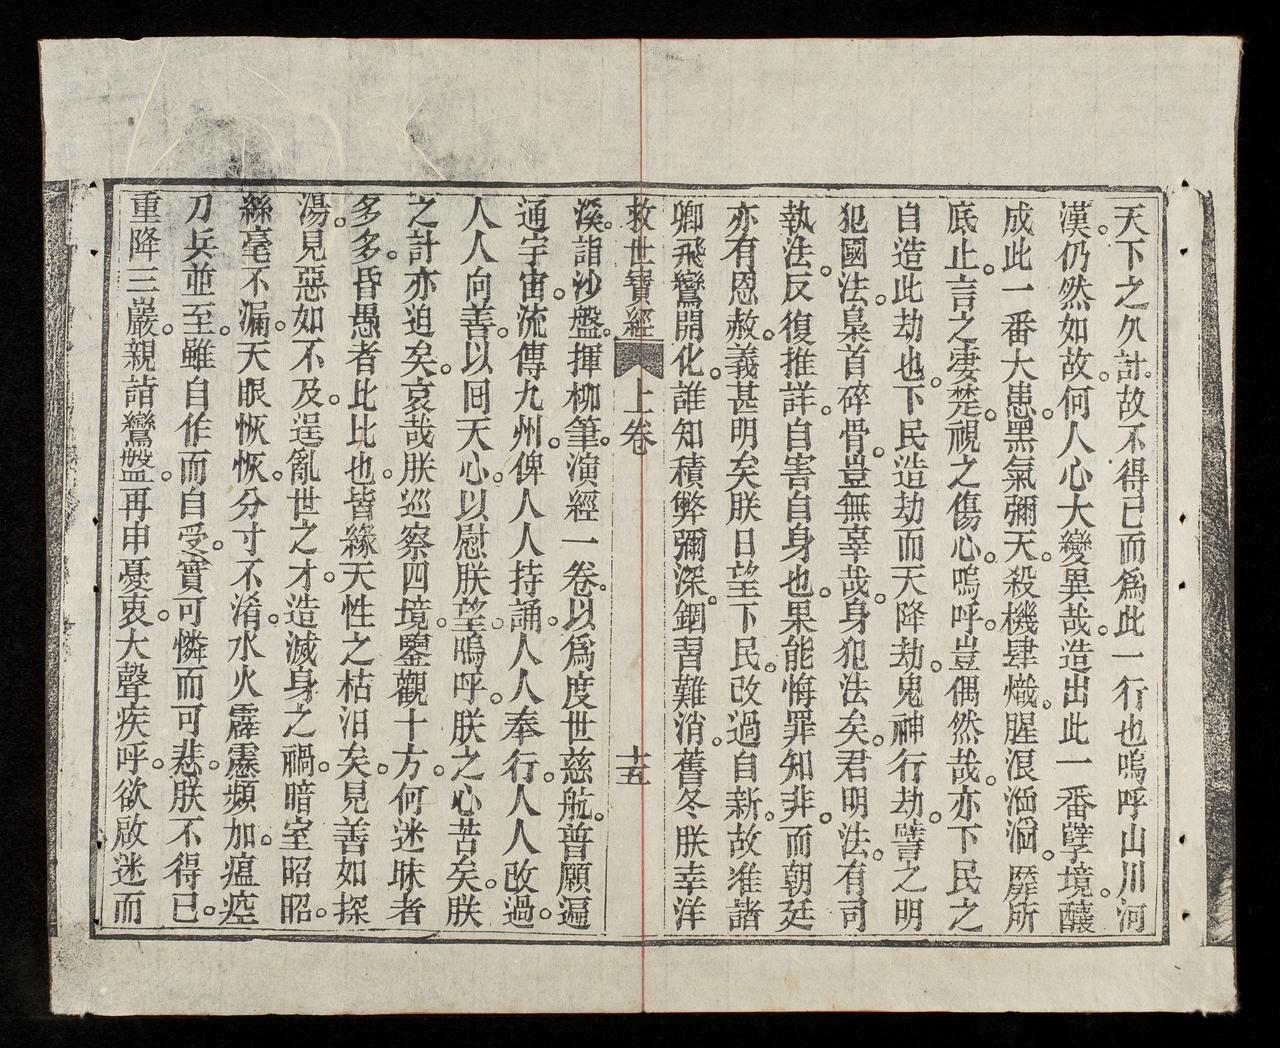 天下之久計。故不得已而爲此一行也嗚呼山川河
漢。仍然如故。何人心大變異哉。造出此一番孽境。釀
成此一番大患。黑氣彌天。殺機肆熾。腥浪湎湎。靡所
底止。言之凄楚。視之傷心。嗚呼。豈偶然哉。亦下民之
自造此劫也。下民造劫而天降劫。鬼神行劫。譬之明
犯國法。梟首碎骨。豈無辜哉。身犯法矣。君明法。有司
執法。反復推詳。自害自身也。果能悔罪知非。而朝廷
亦有恩赦。義甚明矣朕日望下民。改過自新。故准諸
卿飛鸞開化。誰知積弊彌深。錮習難消。舊冬朕幸洋
救世寶經 上卷 十五
溪。詣沙盤。揮柳筆。演經一卷。以爲度世慈航。普願遍
通宇宙。流傳九州。俾人人持誦。人人奉行。人人改過。
人人向善。以回天心。以慰朕望。嗚呼。朕之心苦矣。朕
之計亦迫矣。哀哉朕巡察四境。鑒觀十方。何迷昧者
多多。昏愚者比比也。皆緣天性之枯汨矣。見善如探
湯。見惡如不及。逞亂世之才。造滅身之禍。暗室昭昭。
絲毫不漏。天眼恢恢。分寸不淆。水火霹靂頻加。瘟疫
刀兵並至。雖自作而自受。實可憐而可悲。朕不得已。
重降三巖。親詣鸞盤。再申憂衷。大聲疾呼。欲啟迷而